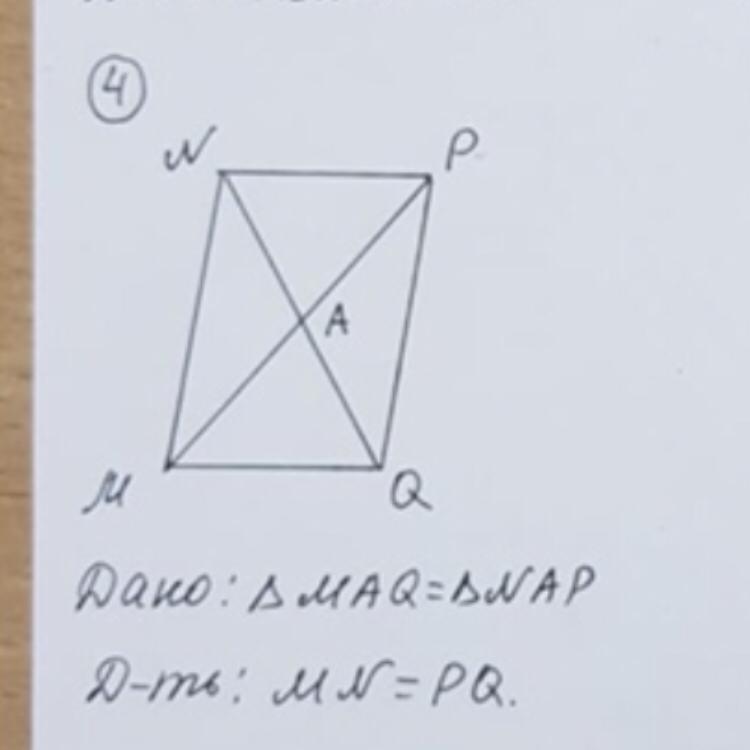 4
N P
A
M Q
Дано: Δ MAQ = Δ NAP
Д-ть: MN = PQ.